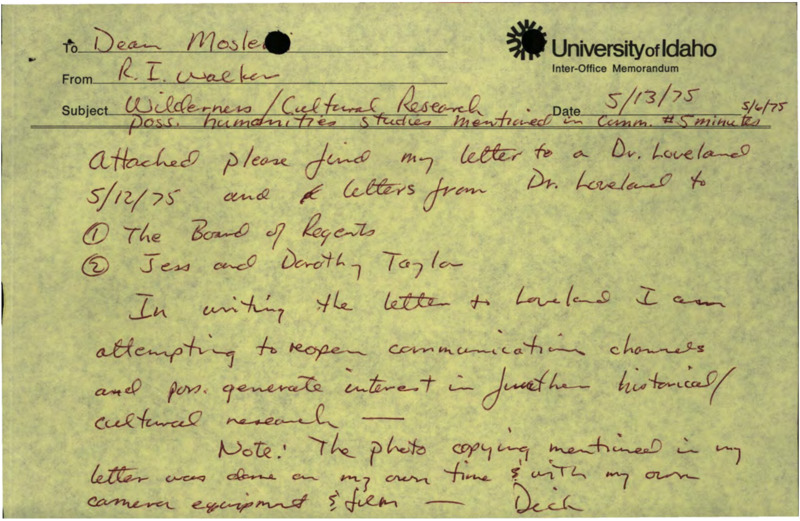 University of Idaho
Inter-Office Memorandum
To Dean Mosle
From R. I. Walker
Subject Wilderness / Cultural Research Date 5/13/75
poss. humanities studies mentioned in Comm. #5 minutes 5/6/75
Attached please find my letter to a Dr. Loveland
5/12/75 and letters from Dr. Loveland to
① The Board of Regents
② Jess and Dorothy Taylor
In writing the letter to Loveland I am
attempting to reopen communication channels
and pos. generate interest in further historical/
cultural research —
Note: The photo copying mentioned in my
letter was done on my own time & with my own
camera equipment & film — Dick